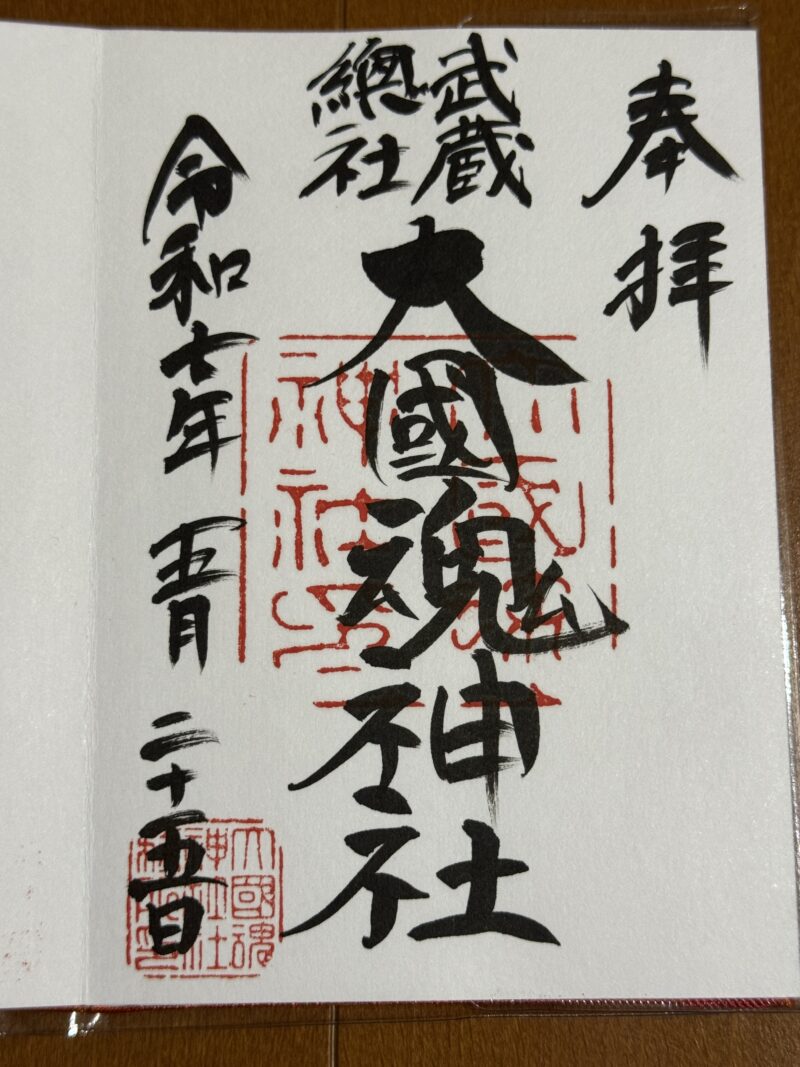 奉拝
武蔵
總社
大國魂神社
令和七年 五月 二十五日
大國魂
神社